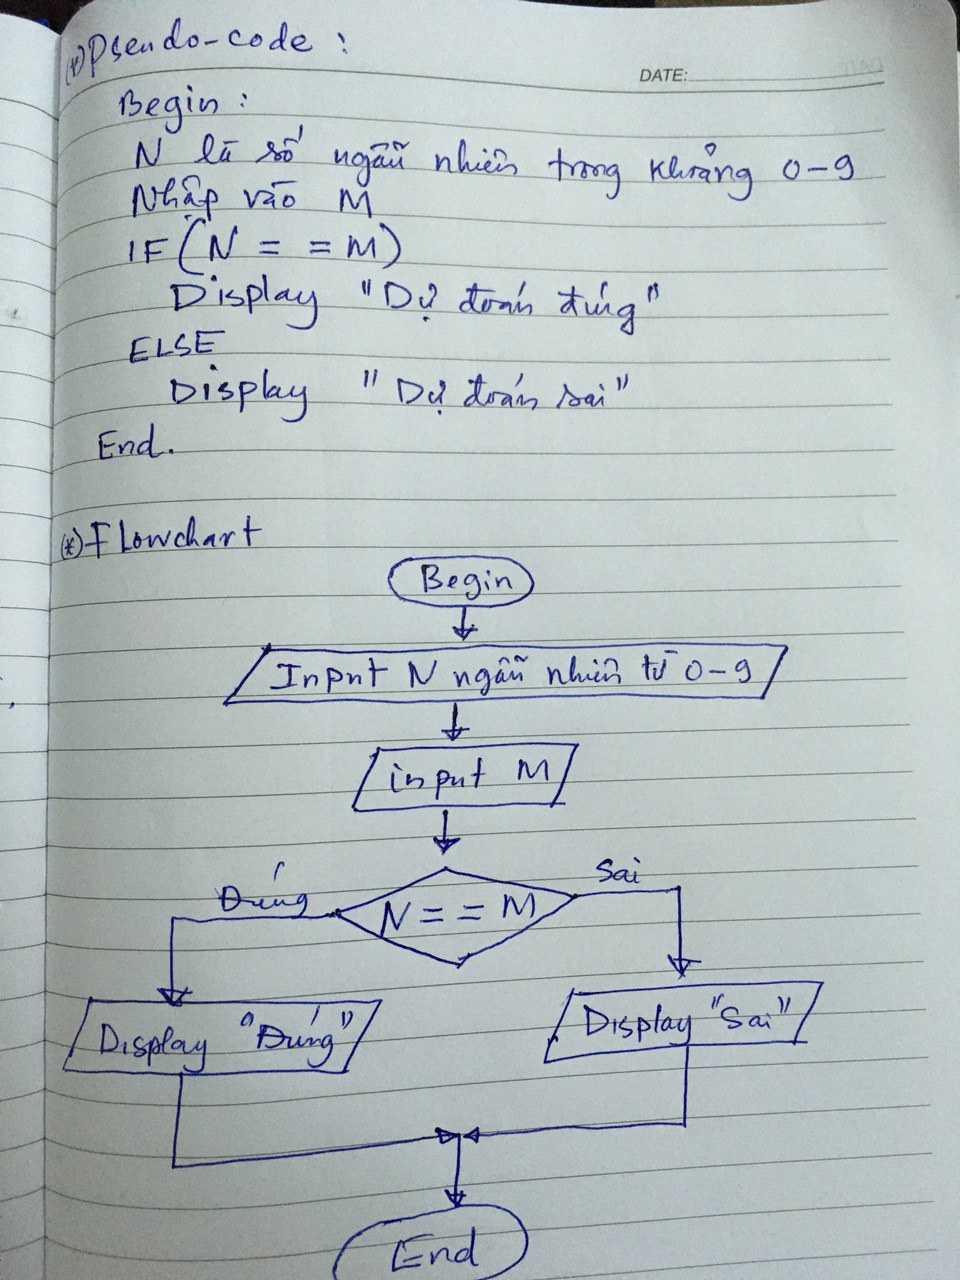 (*) Pseudo-code :
DATE:
Begin :
N là số ngẫu nhiên trong khoảng 0-9
Nhập vào M
IF (N = = M)
Display "Dự đoán đúng"
ELSE
Display "Dự đoán sai"
End.
(*) Flowchart
Begin
Input N ngẫu nhiên từ 0-9
input M
Đúng
N = = M
Sai
Display "Đúng"
Display "Sai"
End